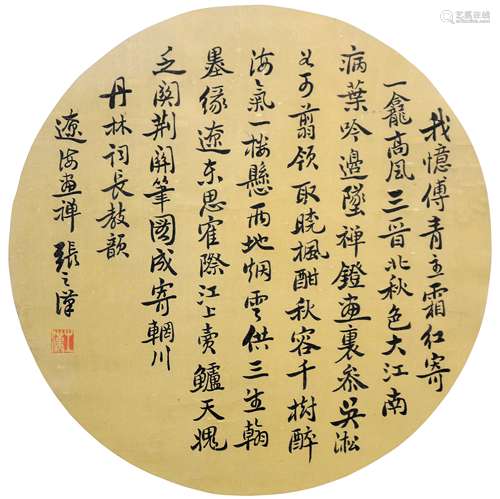 我憶傅青主霜紅寄
一龕高風三晉北秋色大江南
病葉吟邊墜禪鐙畫裏參吳淞
可翦領取曉楓酣秋容千樹醉
海氣一樓懸兩地烟雲供三生翰
墨緣遼東思寉際江上賣鱸天愧
乏關荆關筆圖成寄輞川
丹林詞長教韻
遼海畫禪 張之漢